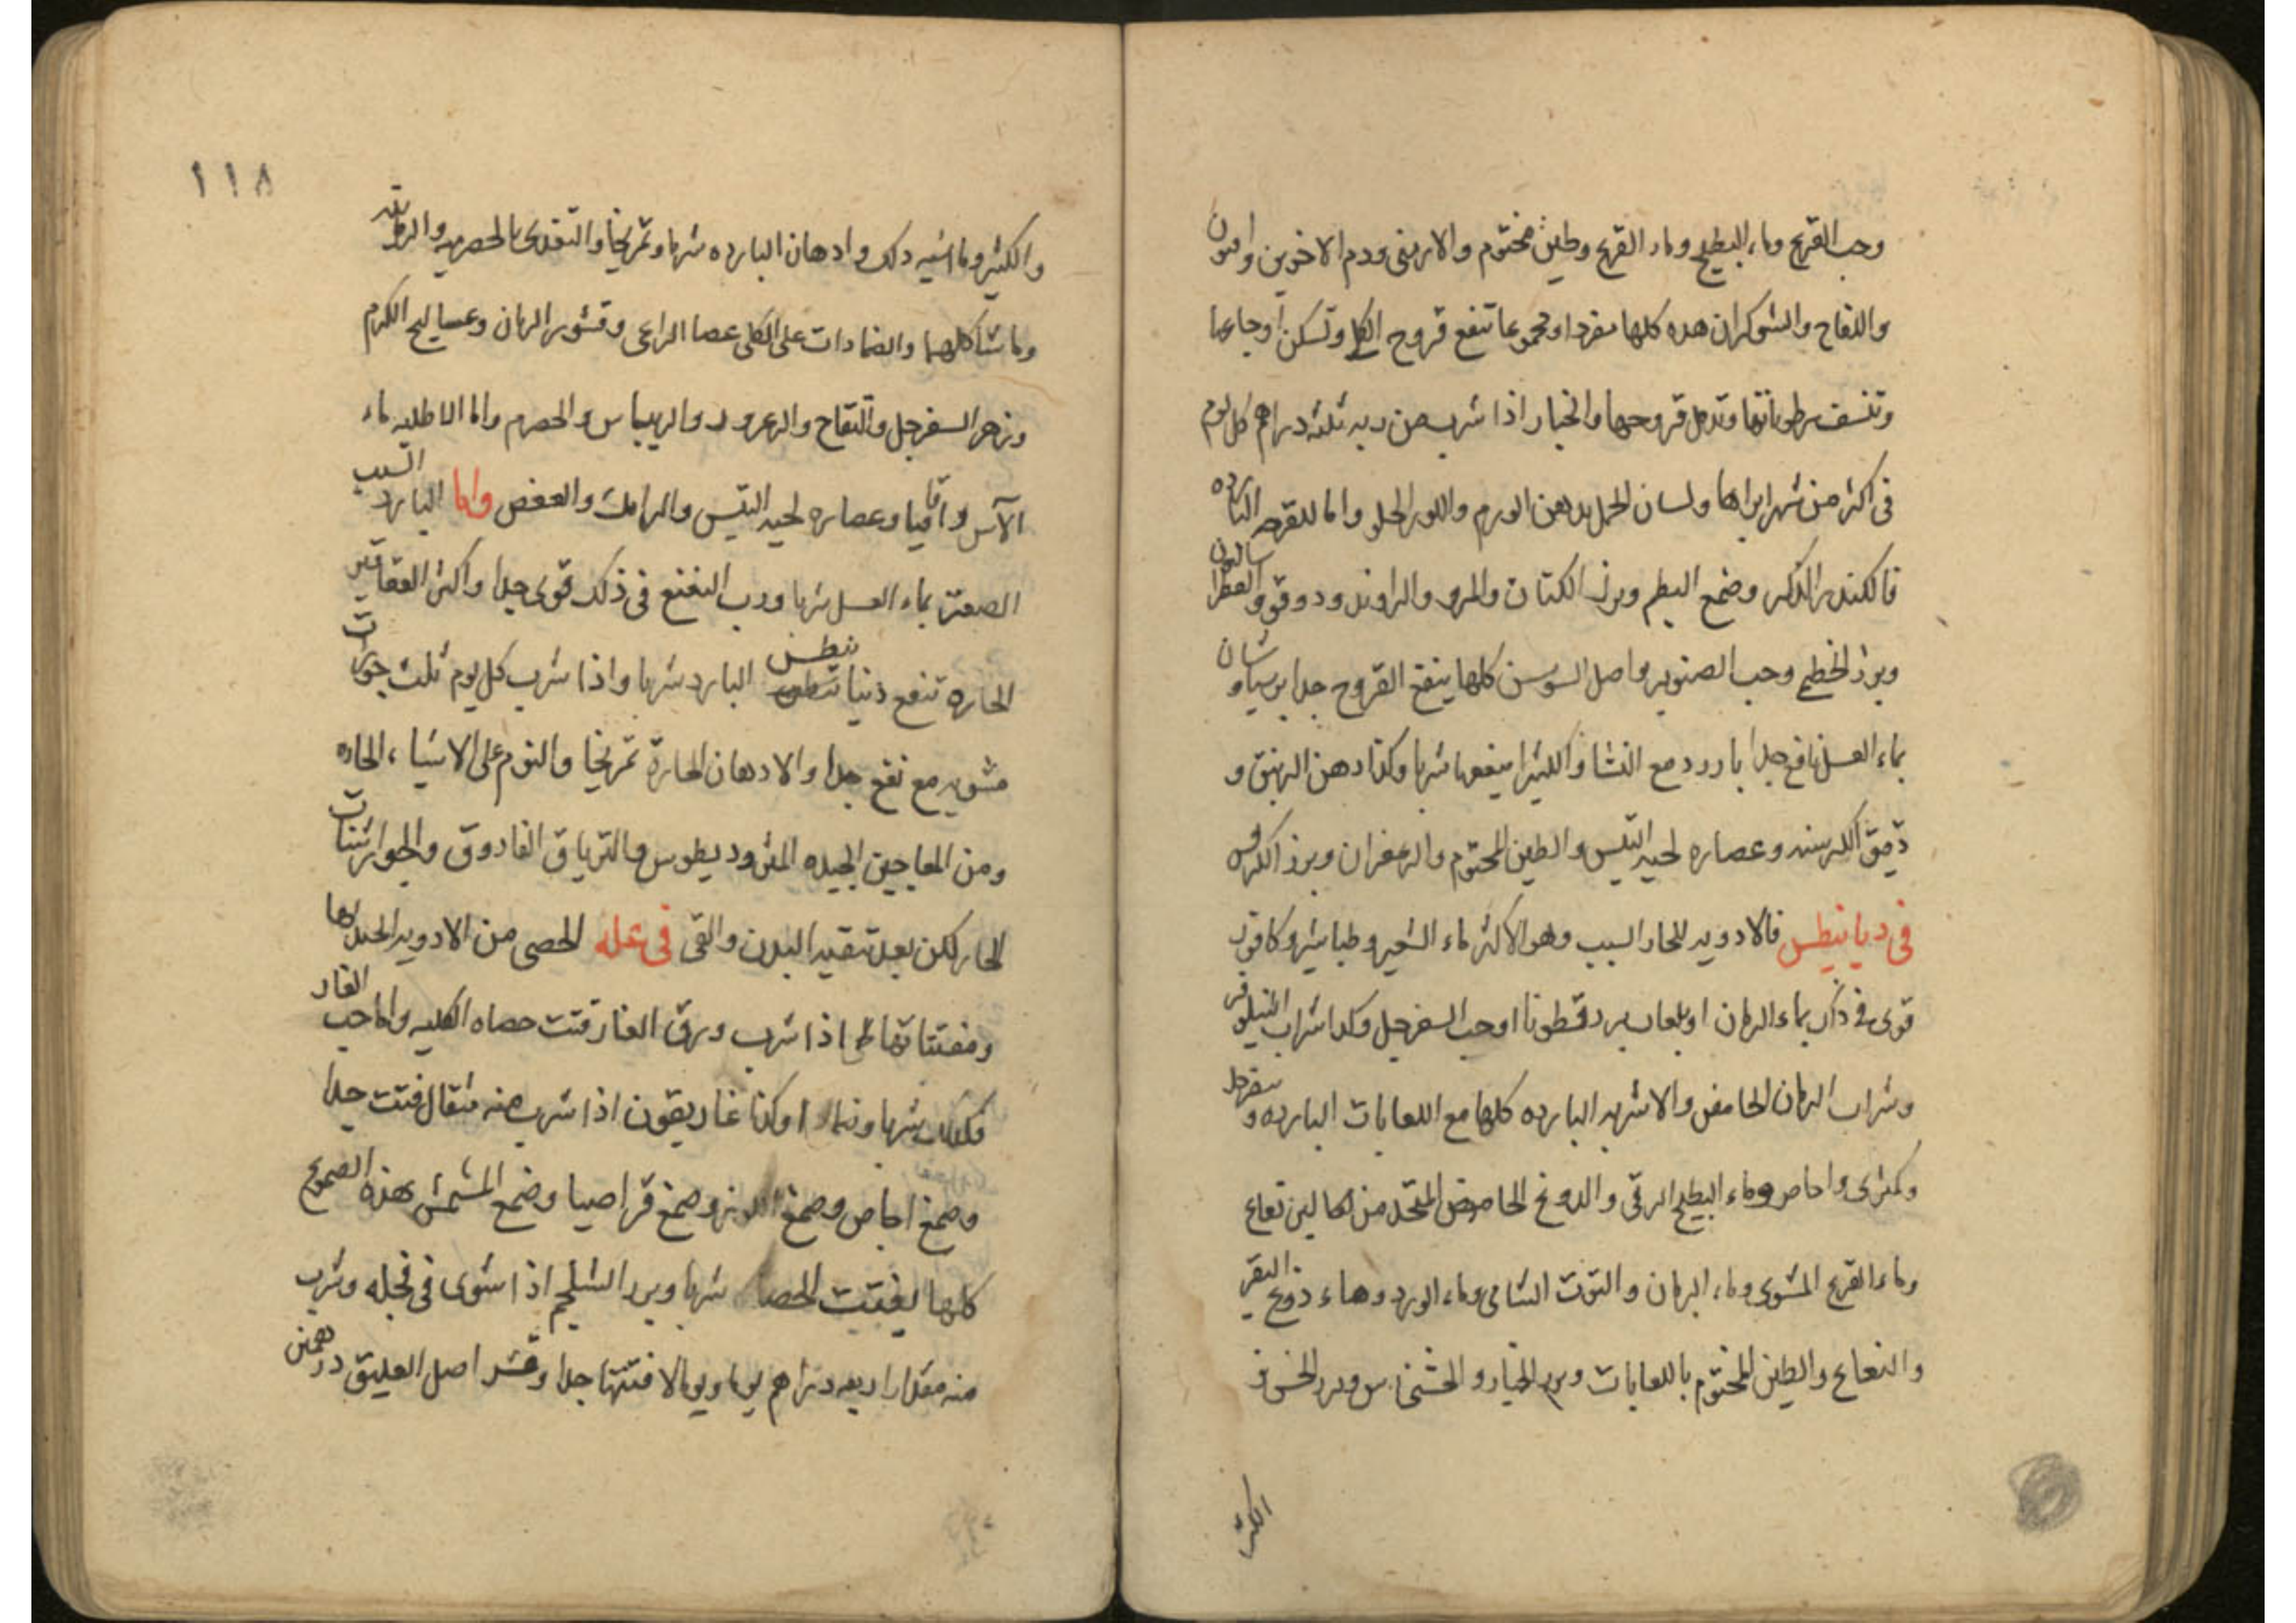 وحب القرع وماء البطيخ وماء القرع وطين مختوم والارمني ودم الاخوين وافيون
واللفاح والشوكران هذه كلها مفردا ومجموعا تنفع قروح الكلى وتسكن اوجاعها
وتنشف رطوباتها وتدمل قروحها والخيار اذا شرب من ربه ثلثه دراهم كل يوم
فى اكثر من شهر ابراها ولسان الحمل بدهن الورم واللوز الحلو واما للقرحه البارده
فالكندر الذكر وضمغ البطم وبزر الكتان والمرو والراوند ودوقو والفطراساليون
وبزر الخطمى وحب الصنوبر واصل السوسن كلها ينقى القروح جدا برسياوشان
بماء العسل نافع جدا بارزد مع النشا والكثيرا ينفعها شربا وكذا دهن الزنبق و
دقيق الكرسنه وعصاره لحيه التيس والطين المختوم والزعفران وبزر الكرفس
فى ديابيطس فالادويه للحار السبب وهو الاكثر ماء الشعير وطباشير وكافور
قوى فى ذلك بماء الرمان او بلعاب بزر قطونا او حب السفرجل وكذا شراب النيلوفر
وشراب الرمان الحامض والاشربه البارده كلها مع اللعابات البارده و سفرجل
وكمثرى واجاص وماء البطيخ الرقى والدوغ الحامض المتخذ من
وماء القرع المشوى وماء الرمان والتوت الشامى وماء الورد وماء دوغ البقر
والنعناع والطين المختوم باللعابات وبزر الخيار والخشخاس وبزر الخس
الكثير
١١٨
والكثير وما اشبه ذلك وادهان البارده شربا وتمريخا والتغذى بالحصرميه والرمانيه
وما شاكلهما والضمادات على الكلى عصا الراعى وقشور الرمان وعساليج الكرم
وزهر السفرجل والتفاح والزعرور والريباس والحصرم واما الاطليه ماء
الآس واقاقيا وعصاره لحيه التيس والرامك والعفص واما البارد السبب
الصعتر بماء العسل شربا ورب النعنع فى ذلك قوى جدا واكثر العقاقير
الحاره تنفع ذنيابيطس البارد شربا واذا شرب كل يوم ثلث جوزات
مشويه مع نفع جدا والادهان الحارة تمريخا والنوم على الاشياء الحاره
ومن المعاجين الجيده المثروديطوس والترياق الفاروق والجوارشنات
الحار لكن بعد تنقيه البدن والقى فى عله الحصى من الادويه
ومفتتاتها اذا شرب ورق الغار فتت حصاه الكليه واما حب الغار
فكذلك شربا وضمادا وكذا غاريقون اذا شرب منه مثقال فتت جدا
وصمغ اجاص وصمغ اللوز وصمغ قراصيا وضمغ المشمش هذه الصموغ
كلها يفتت الحصا شربا وبزر الشلجم اذا شوى فى فجله وشرب
منه مقدار اربعه دراهم يوما ويوما لا فتتها جدا وقشر اصل العليق درهمين